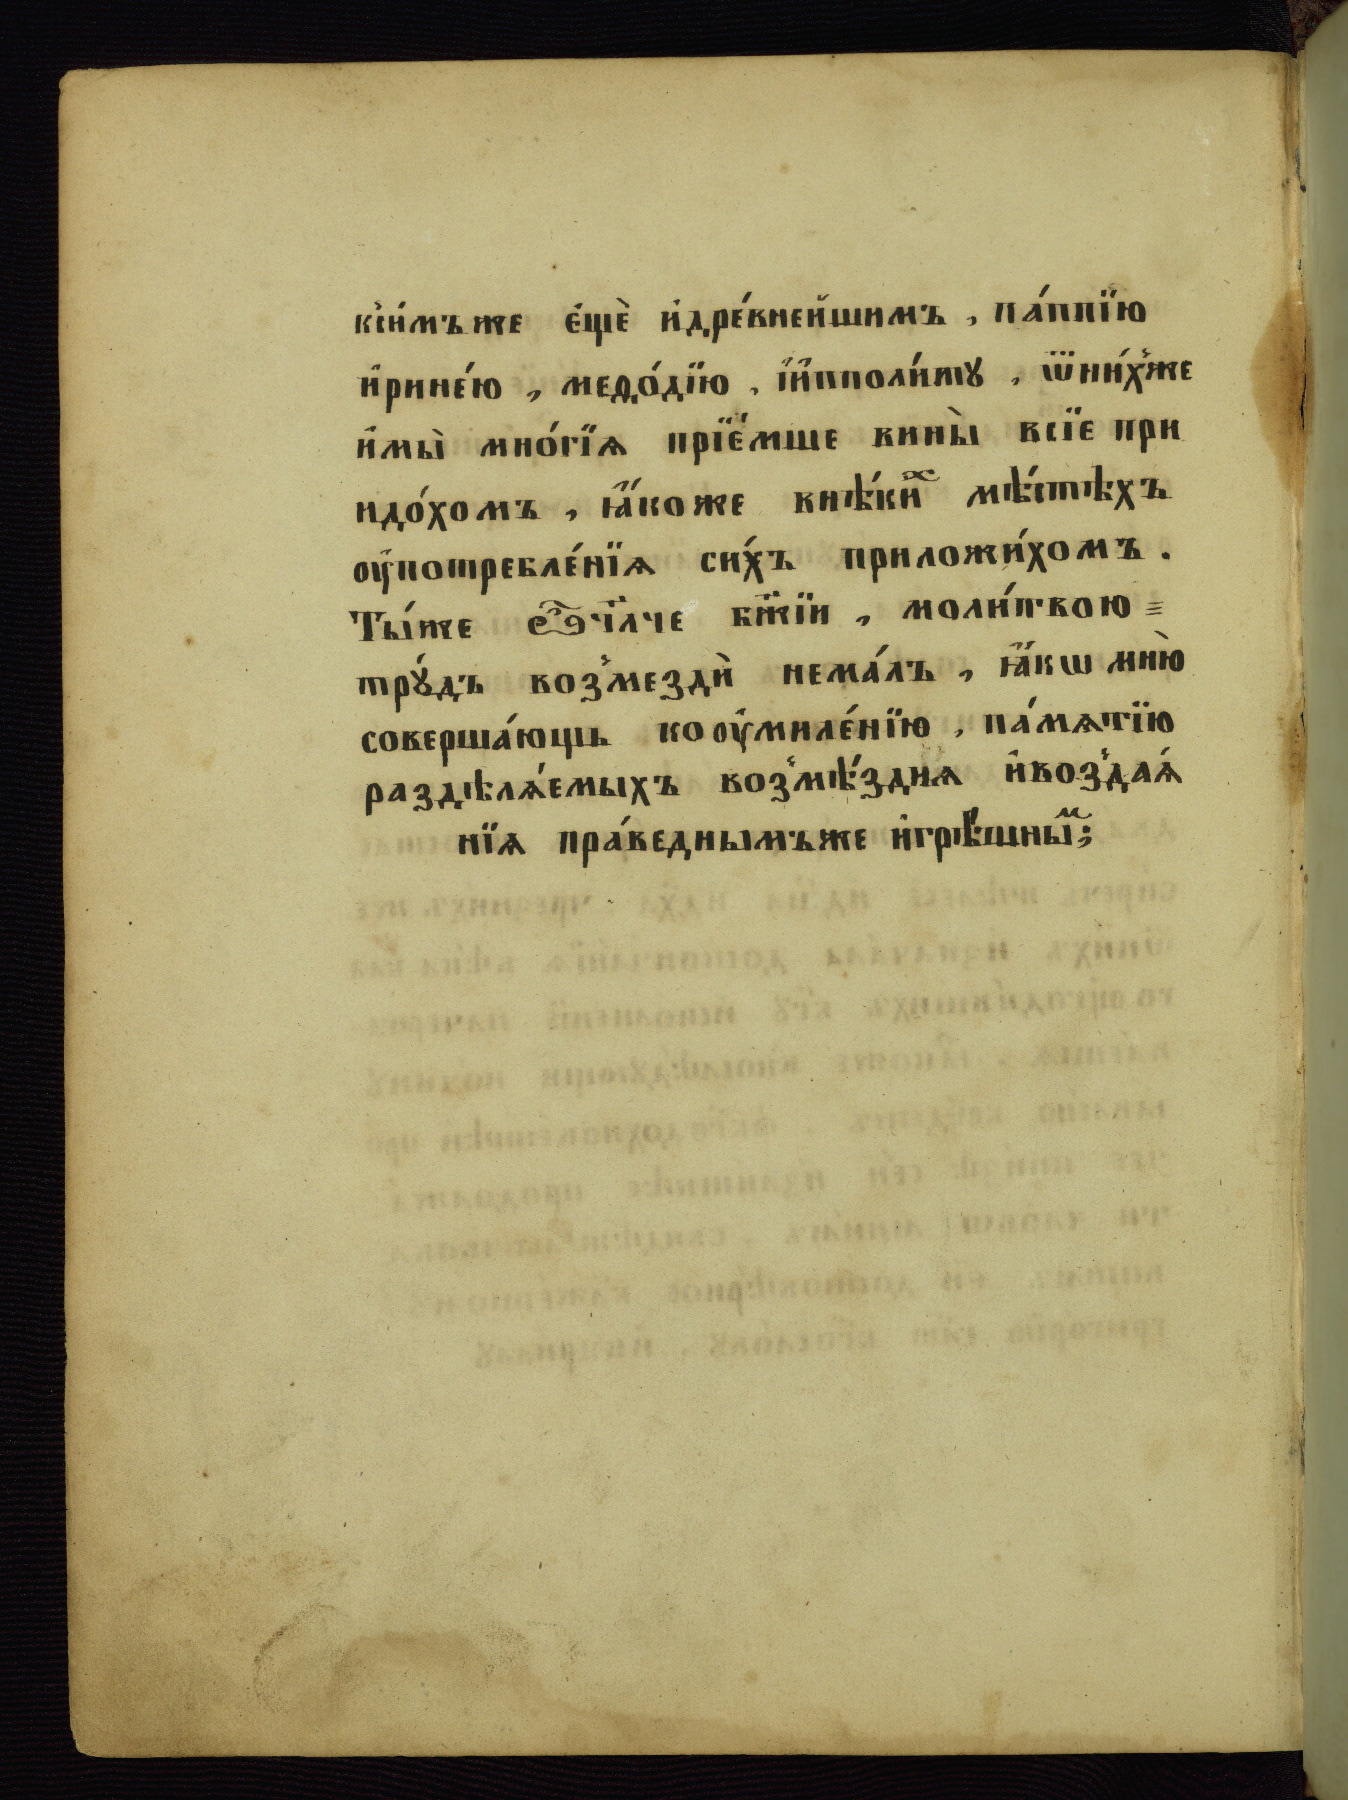 ксимъже еще идревнеишимъ, паппїю
иринею, меѳодїю, їипполиту, ѿнихже
имы многїѧ прїемше вины всїе при
идохомъ, ꙗкоже внѣкиⷯ мѣстѣхъ
оупотребленїѧ сихъ приложихомъ.
Тыже ѻтч҃лче бж҃їи, молитвою
трꙋдъ возмезди немалъ, ꙗкѡ мню
совершающь кооумиленїю, памѧтїю
раздѣлѧемыхъ возмѣздиѧ ивоздаѧ
нїѧ праведнымъже игрѣшныⷨ;